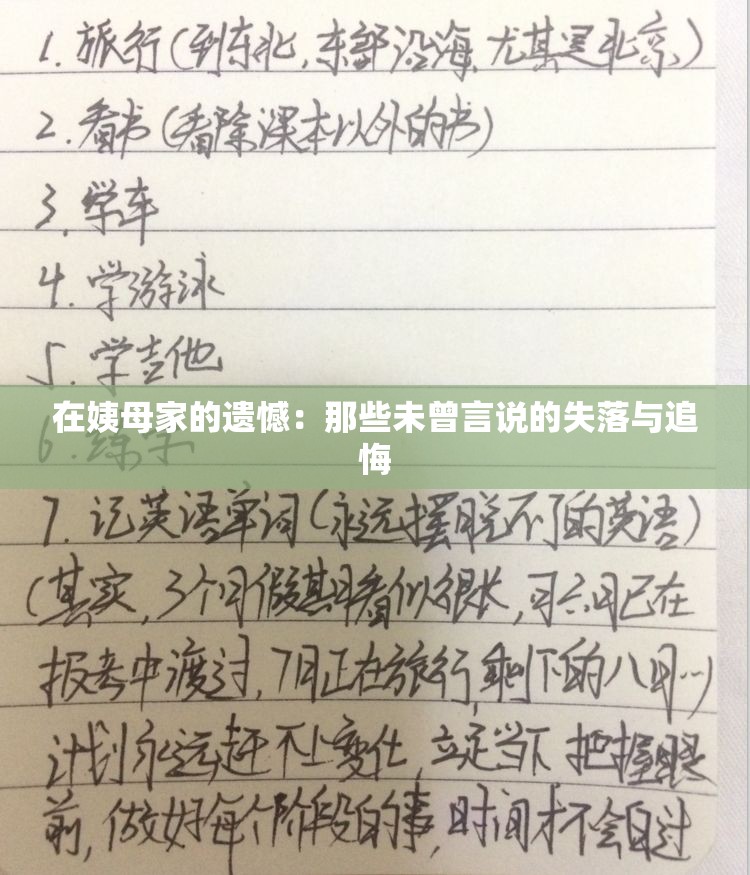 1. 旅行(到东北,东部沿海,尤其是北京)
2. 看书(看除课本以外的书)
3. 学车
4. 学游泳
5. 学吉他
在姨母家的遗憾:那些未曾言说的失落与追
悔
6. 练字
7. 记英语单词(永远摆脱不了的英语)
(其实,3个月假期看似很长,可六月已在
报考中渡过,7月正在旅行,剩下的八月…)
计划永远赶不上变化,立足当下 把握眼
前,做好每个阶段的事,时间才不会白过